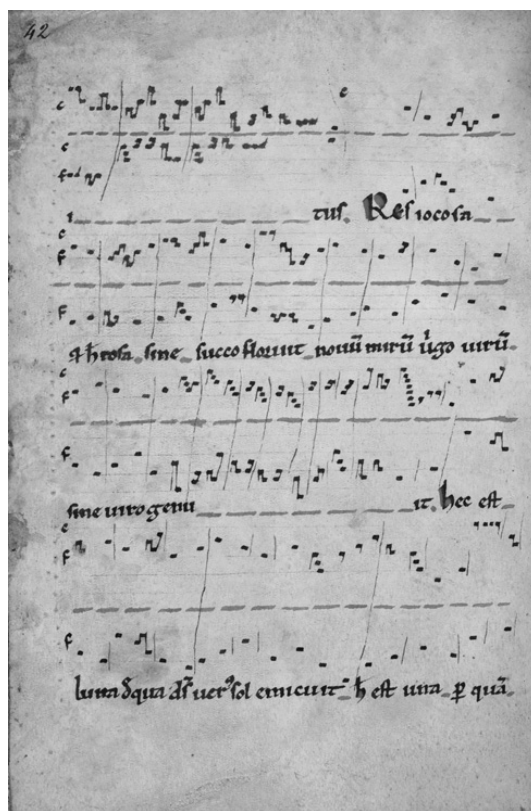 42
tus. Res iocosa
qd hec rosa sine succo floruit novū mirū v̇go virū
sine viro genu it. hec est
luna d̄ qua ds̄ verꝰ sol emicuit h̄ est una ꝑ quā